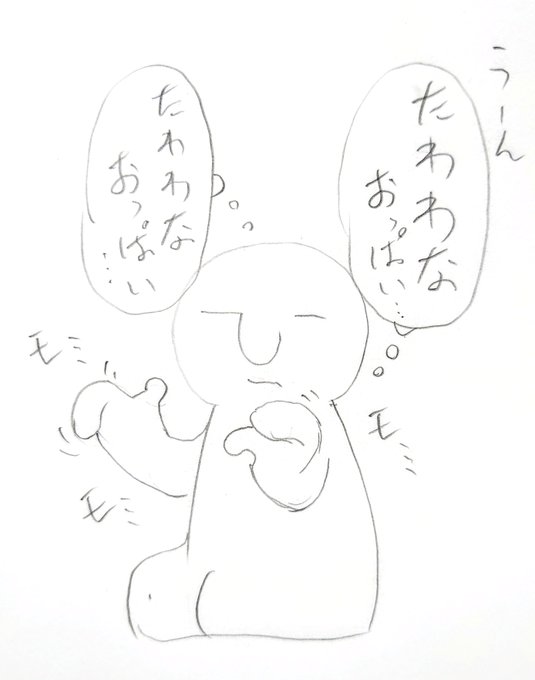 うーん
たわわな
おっぱい…
たわわな
おっぱい…
モミ
モミ
モミ